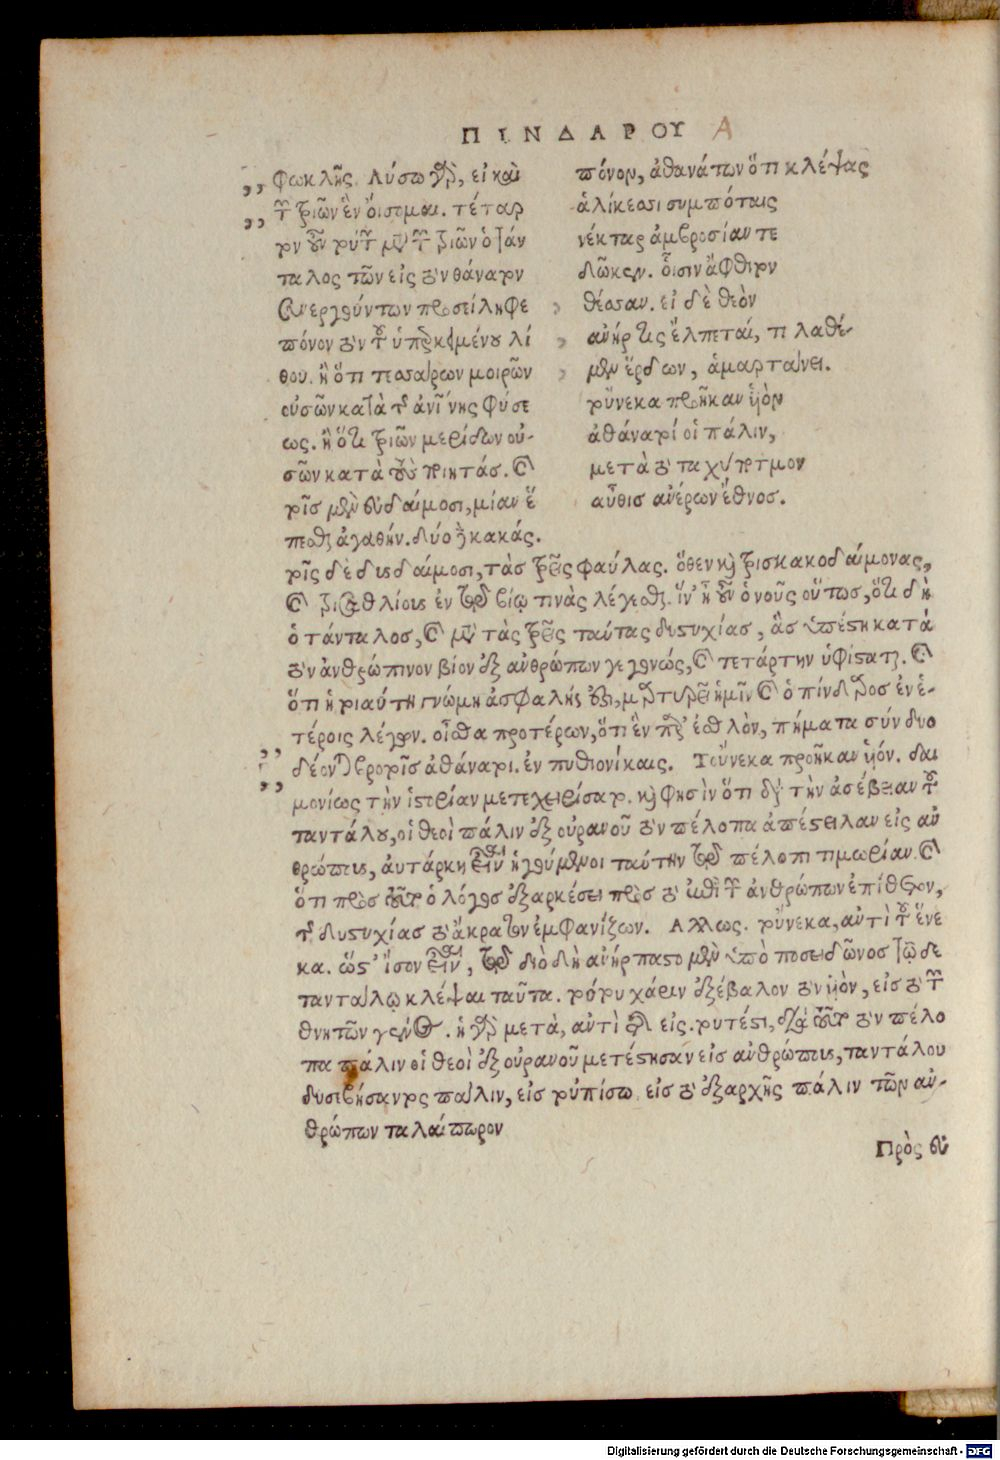 ΠΙΝΔΑΡΟΥ A
φωκλῆς. Λύσω γὰρ, εἰ καὶ
τῶν τριῶν ἓν οἴσομαι. τέταρ
τον οὖν τοῦτον μετὰ τῶν τριῶν ὁ Τάν
ταλος τῶν εἰς τὸν θάνατον
συνεργούντων προσείληφε
πόνον τὸν τοῦ ὑπερκειμένου λί
θου. ἢ ὅτι τεσσάρων μοιρῶν
οὐσῶν κατὰ τῆς φύσε
ως. ἢ ὅτι τριῶν μερίδων οὐ-
σῶν κατὰ τοὺς ποιητάς. καὶ
τοῖς μὲν εὐδαίμοσι, μίαν ἕ
πεσθαι ἀγαθήν. δύο δὲ κακάς.
πόνον, ἀθανάτων ὅτι κλέψας
ἁλίκεσσι συμπόταις
νέκταρ ἀμβροσίαν τε
δῶκεν. οἷσιν ἄφθιτον
θέσσαν. εἰ δὲ θεὸν
ἀνήρ τις ἔλπεταί, τι λαθέ-
μεν ἔρδων, ἁμαρτάνει.
τοὔνεκα προῆκαν υἱὸν
ἀθάνατοί οἱ πάλιν,
μετὰ τὸ ταχύποτμον
αὖθισ ἀνέρων ἔθνοσ.
τοῖς δὲ δυσδαίμοσι, τὰσ τρεῖς φαύλας. ὅθεν καὶ τρισκακοδαίμονας,
καὶ τρισαθλίους ἐν τῷ βίῳ τινὰς λέγεσθαι. ἵν' ᾖ οὖν ὁ νοῦς οὕτωσ, ὅτι δὴ
ὁ τάνταλοσ, καὶ μετὰ τὰς τρεῖς ταύτας δυστυχίασ, ἃσ ὑπέστη κατὰ
τὸν ἀνθρώπινον βίον ἐξ ἀνθρώπων γεγονώς, καὶ τετάρτην ὑφίσταται. καὶ
ὅτι ἡ τοιαύτη γνώμη ἀσφαλής ἐστι, μαρτυρεῖ ἡμῖν καὶ ὁ πίνδαροσ ἐν ἑ-
τέροις λέγων. οἶσθα προτέρων, ὅτι ἓν παρ' ἐσθλὸν, πήματα σύν δυο
δέονται βροτοῖσ ἀθάνατοι. ἐν πυθιονίκαις. Τοὔνεκα προῆκαν υἱόν. δαι
μονίως τὴν ἱστορίαν μετεχειρίσατο. καὶ φησὶν ὅτι διὰ τὴν ἀσέβειαν τοῦ
ταντάλου, οἱ θεοὶ πάλιν ἐξ οὐρανοῦ τὸν πέλοπα ἀπέστειλαν εἰς ἀν
θρώπους, αὐτάρκη εἶναι ἡγούμενοι ταύτην τῷ πέλοπι τιμωρίαν. καὶ
ὅτι πρὸσ τοῦτο ὁ λόγοσ ἐξαρκέσει πρὸσ τὸ τῶν ἀνθρώπων ἐπίθετον,
τῆς δυστυχίασ τὸ ἄκρατον ἐμφανίζων. Αλλως. τοὔνεκα, ἀντὶ τοῦ ἕνε
κα. ὥστ' ἴσον εἶναι, τῷ διὸ δὴ ἀνήρπαστο μὲν ὑπὸ ποσειδῶνοσ τῷ δὲ
τανταλῳ κλέψαι ταῦτα. τούτου χάριν ἐξέβαλον τὸν υἱὸν, εἰσ τὸ τῶν
θνητῶν γένος. ἡ γὰρ μετὰ, ἀντὶ τῆς εἰς. τουτέστι, διὰ τοῦτο τὸν πέλο
πα πάλιν οἱ θεοὶ ἐξ οὐρανοῦ μετέστησαν εἰσ ἀνθρώπους, ταντάλου
δυσεβήσαντος πάλιν, εἰσ τοὐπίσω. εἰσ τὸ ἐξαρχῆς πάλιν τῶν ἀν-
θρώπων ταλαίπωρον
Πρὸς εὐ
Digitalisierung gefördert durch die Deutsche Forschungsgemeinschaft - DFG